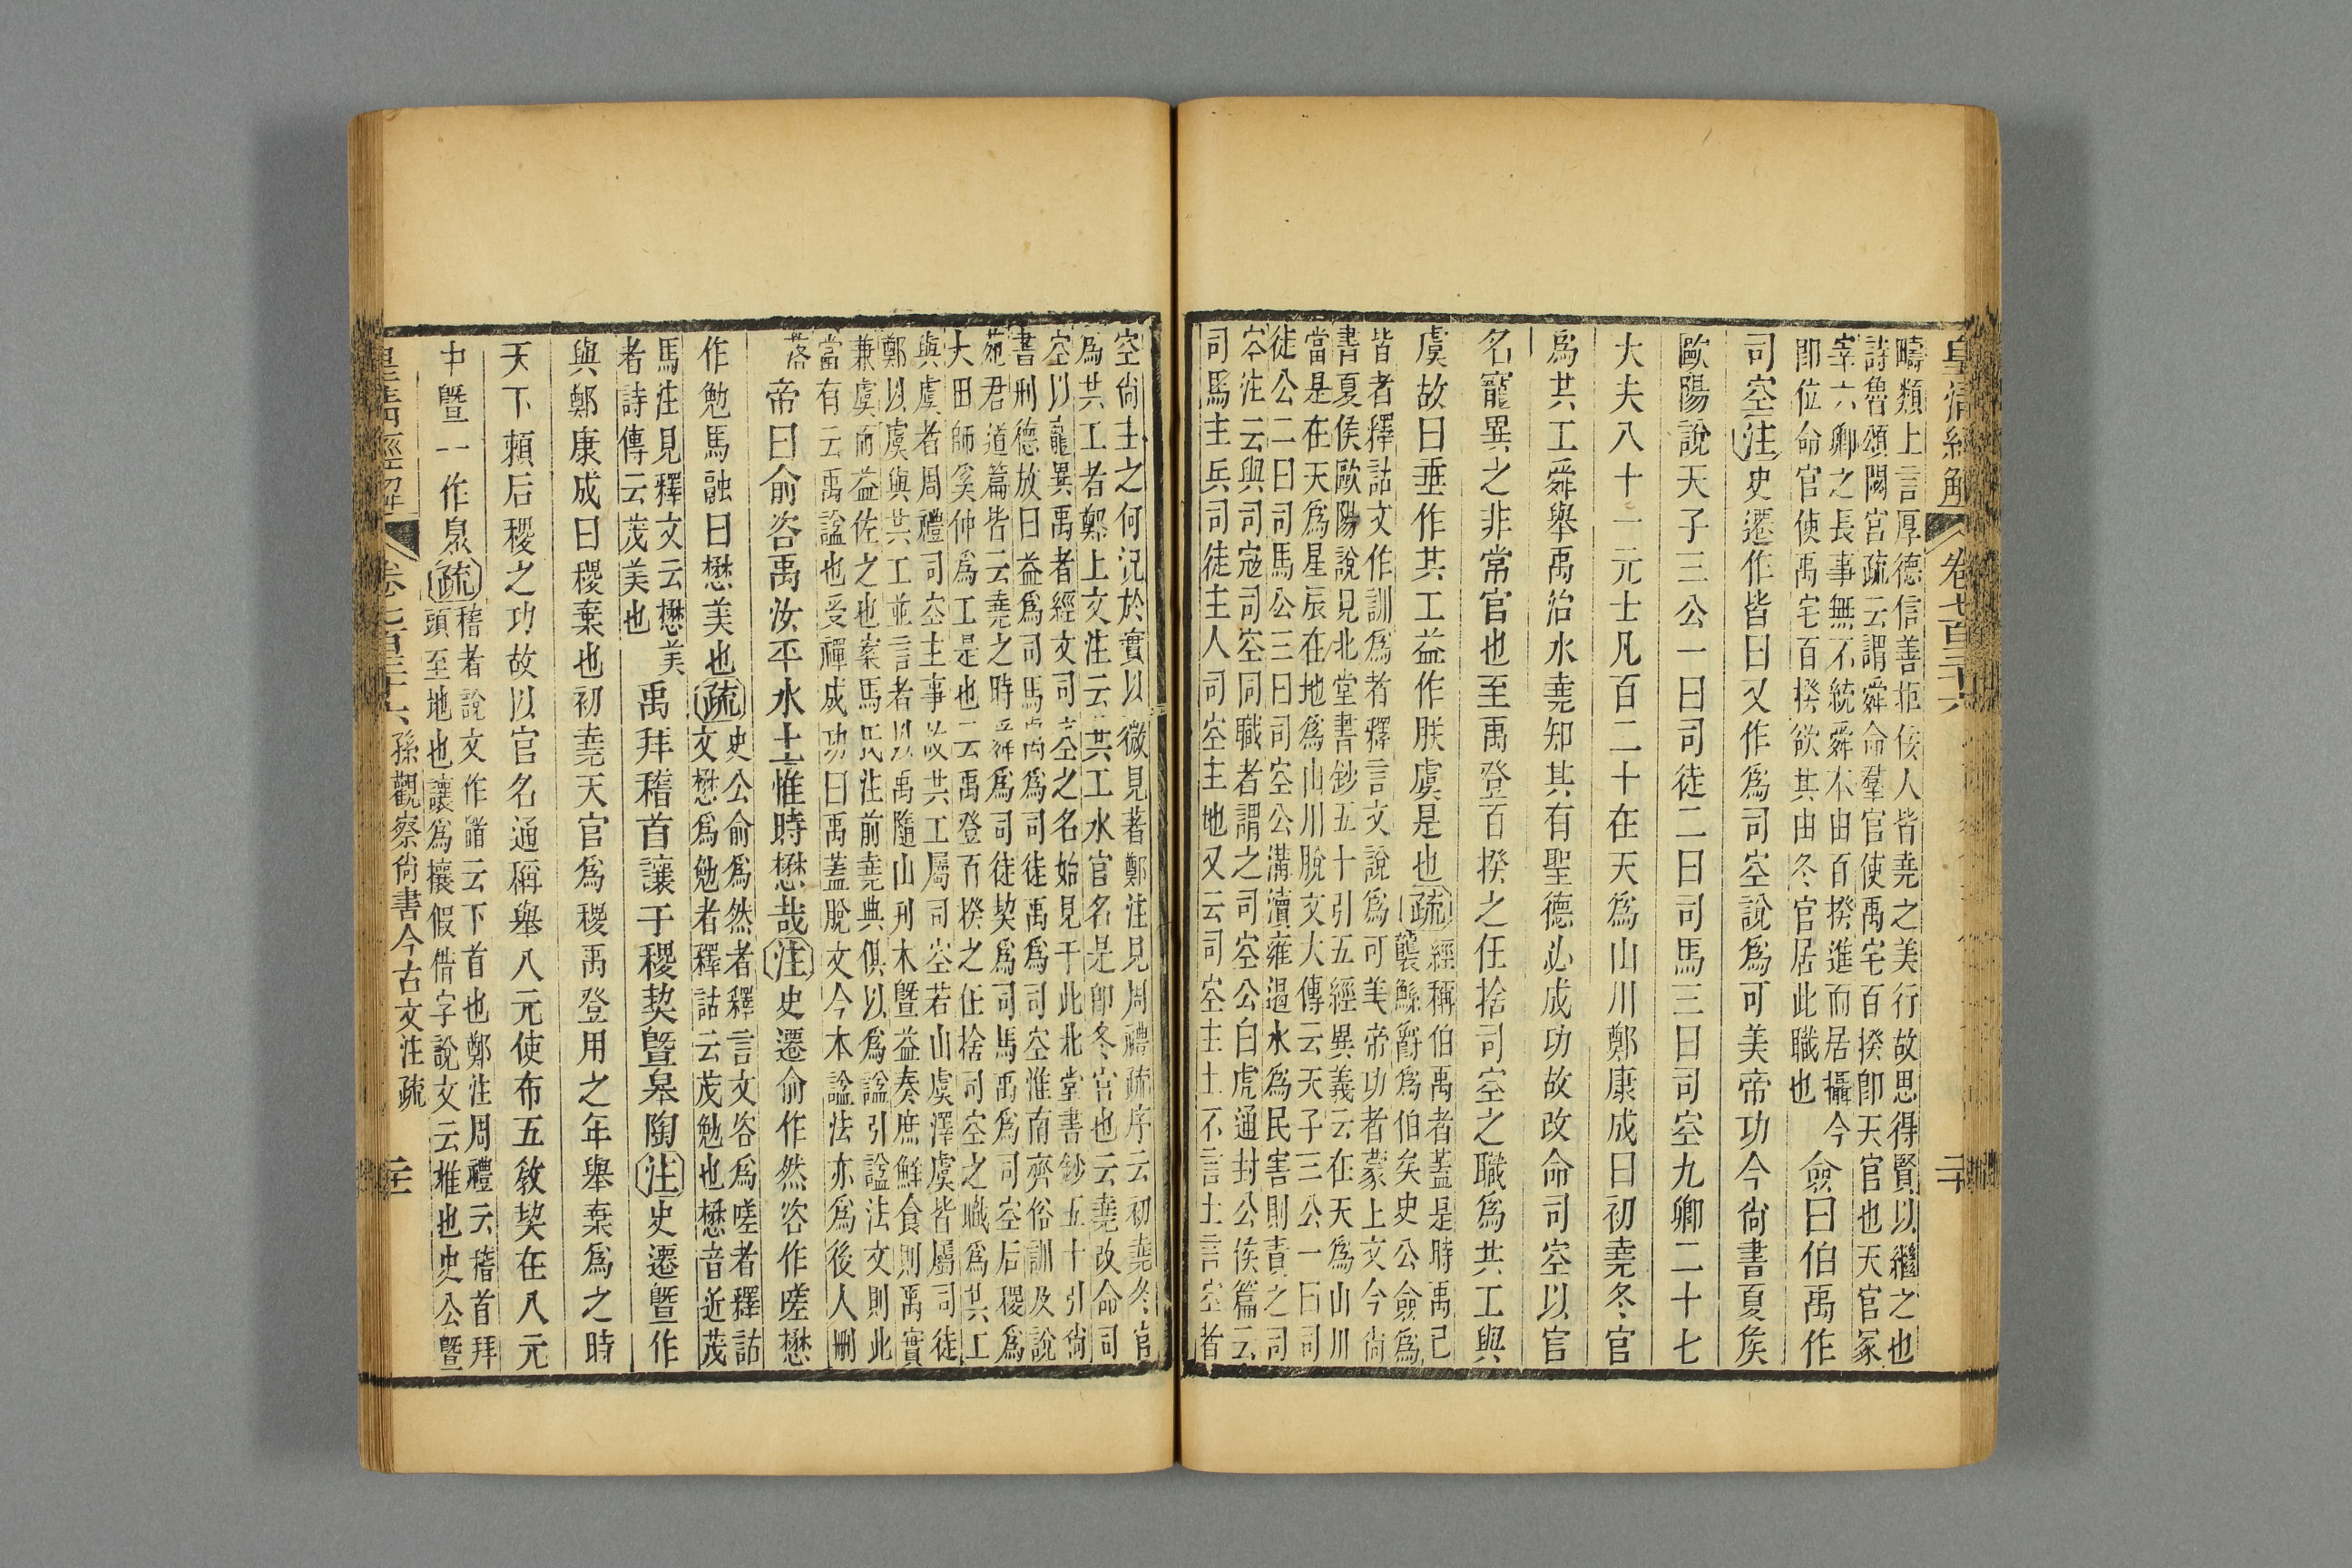 皇清經解 卷七百三十六 二十
疇類上言厚德信善拒佞人皆堯之美行故思得賢以繼之也
詩魯頌閟宮疏云謂舜命羣官使禹宅百揆卽天官也天官冢
宰六卿之長事無不統舜本由百揆進而居攝今
卽位命官使禹宅百揆欲其由冬官居此職也
僉曰伯禹作
司空注史遷作皆曰又作爲司空說爲可美帝功今尙書夏矦
歐陽說天子三公一曰司徒二曰司馬三曰司空九卿二十七
大夫八十一元士凡百二十在天爲山川鄭康成曰初堯冬官
爲共工舜舉禹治水堯知其有聖德必成功故改命司空以官
名寵異之非常官也至禹登百揆之任捨司空之職爲共工與
虞故曰垂作共工益作朕虞是也疏
經稱伯禹者蓋是時禹已
襲鯀爵爲伯矣史公僉爲
皆者釋詁文作訓爲者釋言文說爲可美帝功者蒙上文今尙
書夏侯歐陽說見北堂書鈔五十引五經異義云在天爲山川
當是在天爲星辰在地爲山川脫文大傳云天子三公一曰司
徒公二曰司馬公三曰司空公溝瀆雍遏水爲民害則責之司
空注云與司寇司空同職者謂之司空公白虎通封公侯篇云
司馬主兵司徒主人司空主地又云司空主土不言土言空者
空尙主之何況於實以微見著鄭注見周禮疏序云初堯冬官
爲共工者鄭上文注云共工水官名是卽冬官也云堯改命司
空以寵異禹者經文司空之名始見于此北堂書鈔五十引尙
書刑德放曰益爲司馬禹爲司徒禹爲司空淮南齊俗訓及說
苑君道篇皆云堯之時舜爲司徒契爲司馬禹爲司空后稷爲
大田師奚仲爲工是也云禹登百揆之任捨司空之職爲共工
與虞者周禮司空主事故共工屬司空若山虞澤虞皆屬司徒
鄭以虞與共工並言者以禹隨山刋木曁益奏庶鮮食則禹實
兼虞而益佐之也案馬氏注前堯典俱以爲諡引諡法文則此
當有云禹諡也受禪成功曰禹蓋脫文今本諡法亦爲後人刪
落
帝曰俞咨禹汝平水土惟時懋哉注史遷俞作然咨作嗟懋
作勉馬融曰懋美也疏
史公俞爲然者釋言文咨爲嗟者釋詁
文懋爲勉者釋詁云茂勉也懋音近茂
馬注見釋文云懋美
者詩傳云茂美也
禹拜稽首讓于稷契曁皋陶注史遷曁作
與鄭康成曰稷棄也初堯天官爲稷禹登用之年舉棄爲之時
天下賴后稷之功故以官名通稱舉八元使布五敎契在八元
中曁一作臮疏
稽者說文作䭫云下首也鄭注周禮云稽首拜
頭至地也讓爲攘假借字說文云推也史公曁
皇淸經解 卷七百三十六 孫觀察尙書今古文注疏 二十一